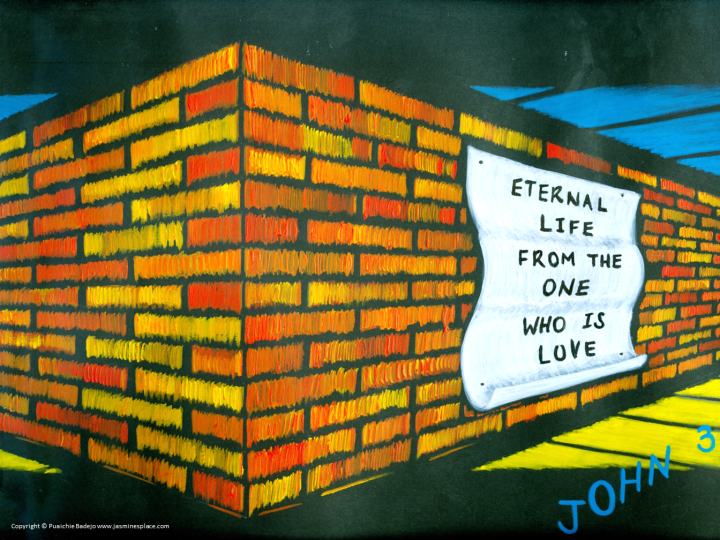 ETERNAL
LIFE
FROM THE
ONE
WHO IS
LOVE
JOHN 3
Copyright © Puaichie Badejo www.jasminesplace.com